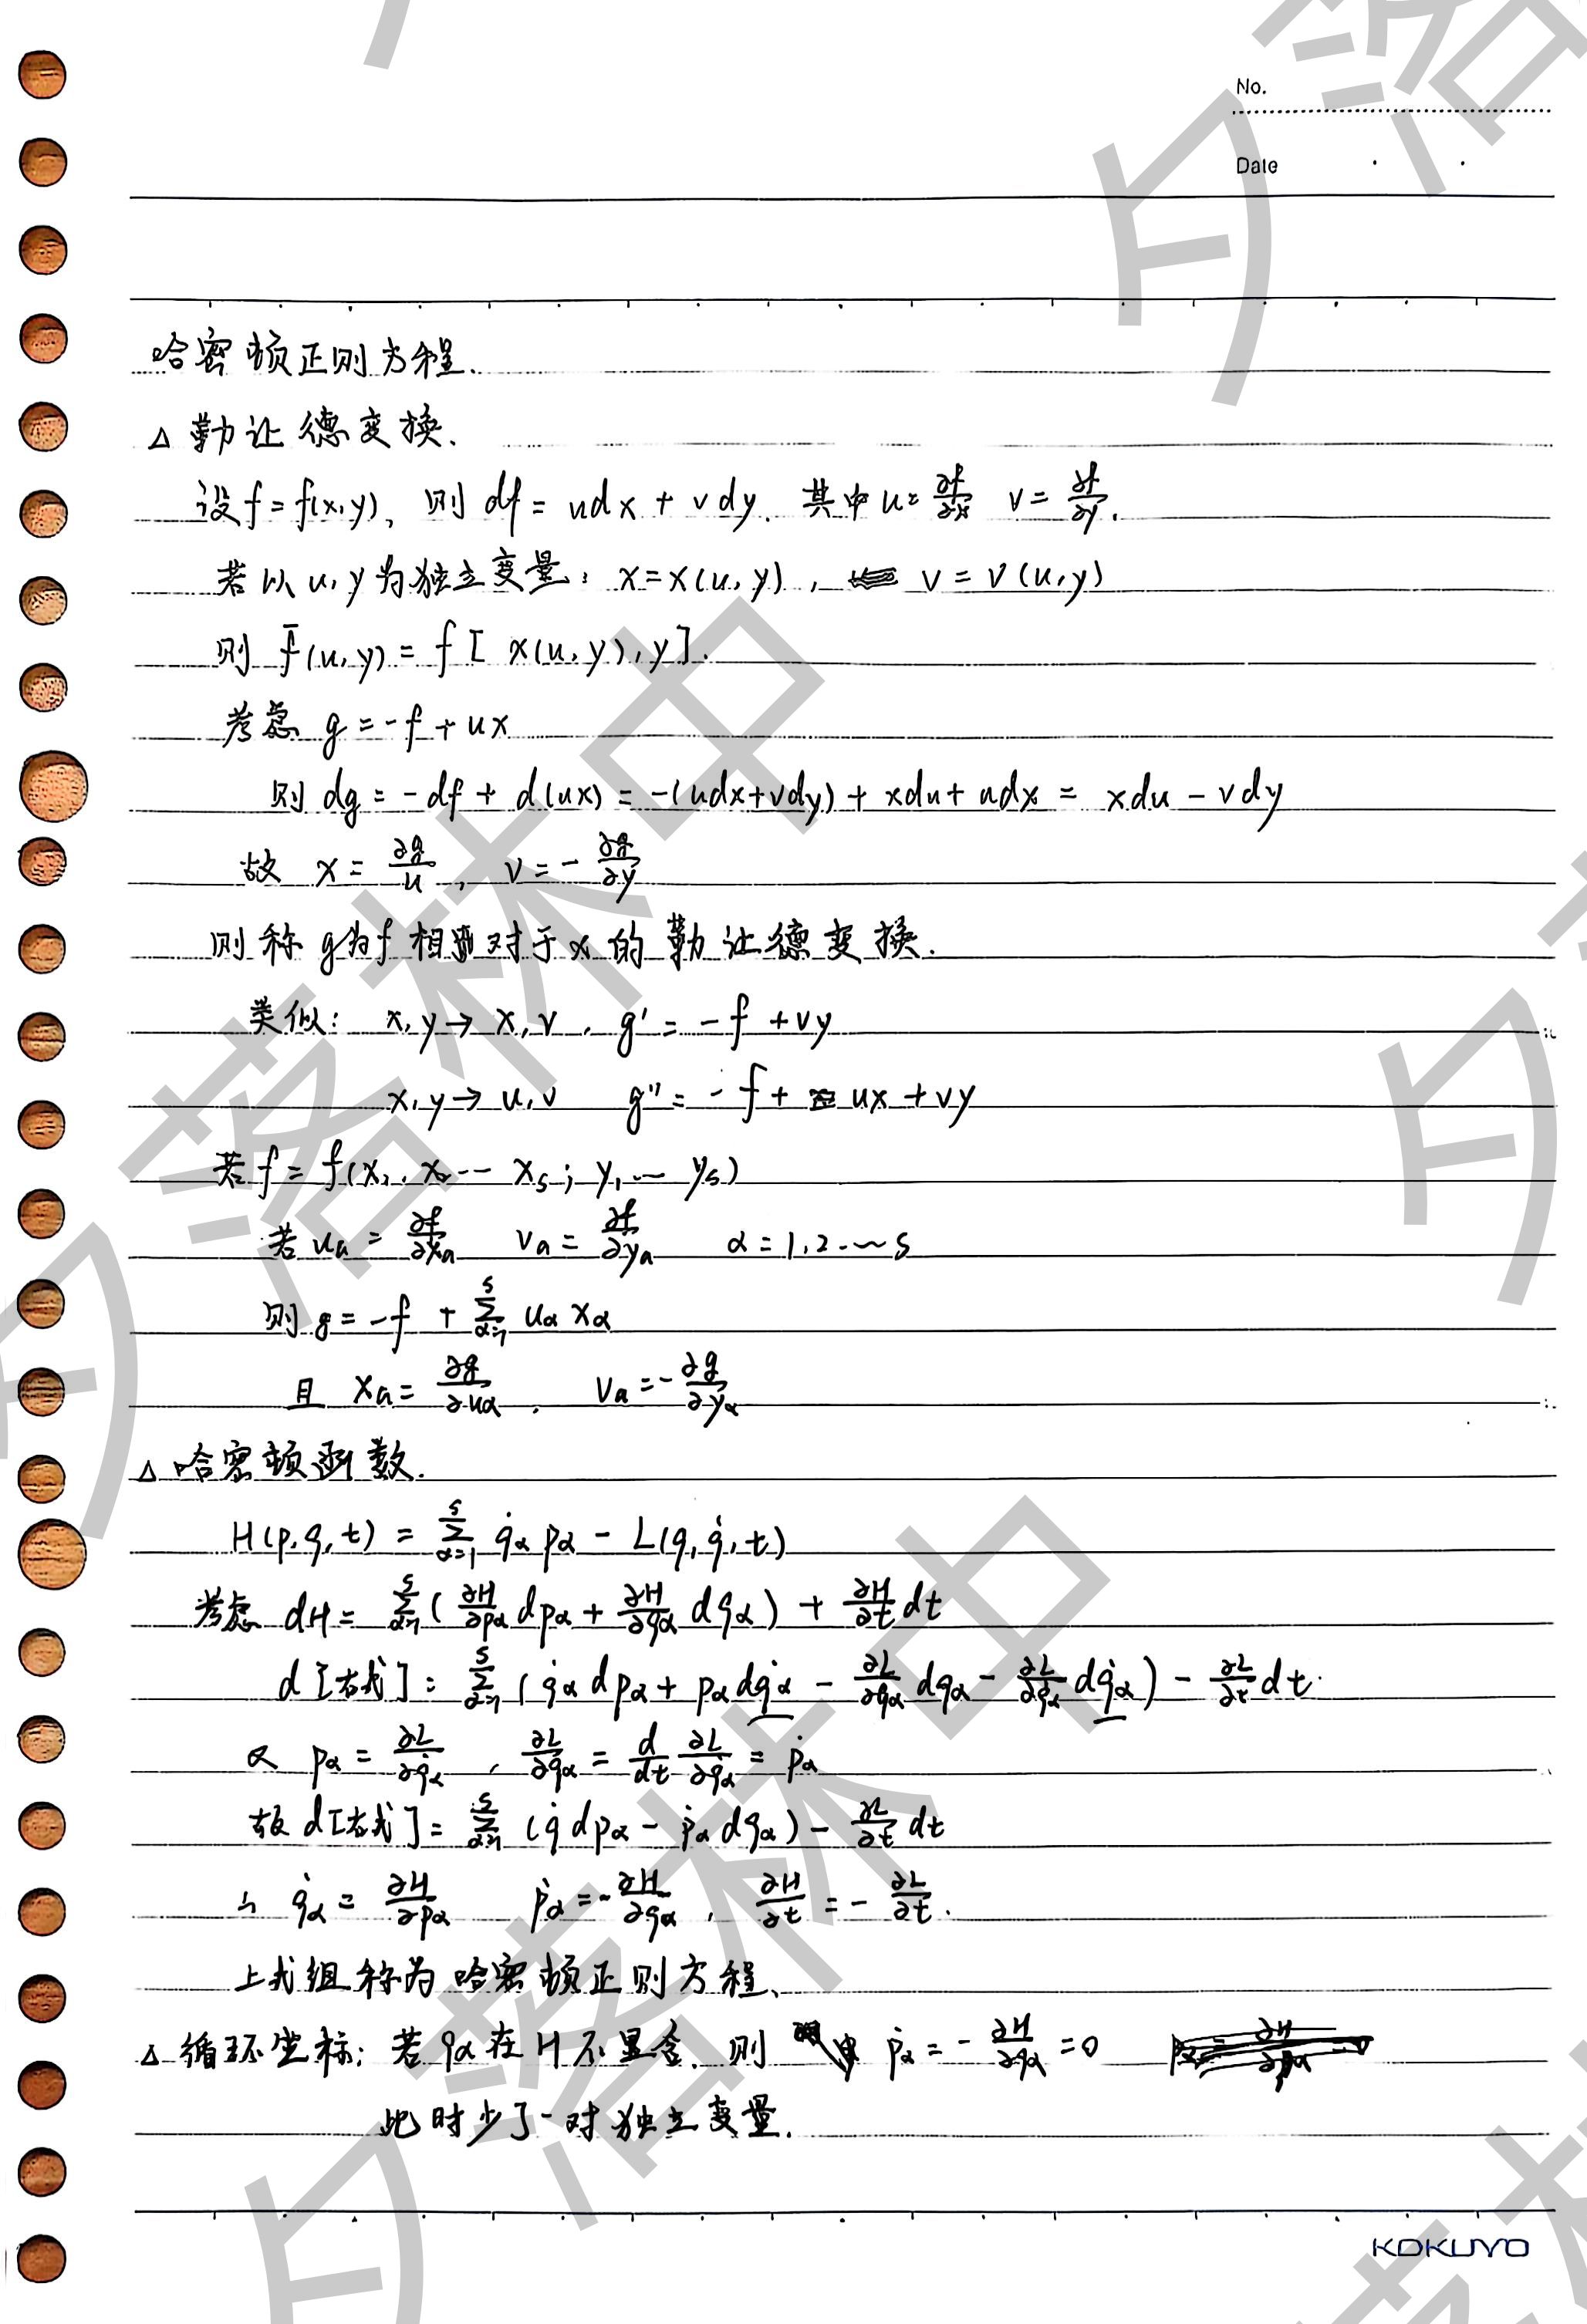 No.
Date
哈密顿正则方程.
△ 勒让德变换.
设 f = f(x,y), 则 df = udx + vdy. 其中 u = ∂f/∂x v = ∂f/∂y.
若以 u, y 为独立变量: x = x(u,y), v = v(u,y)
则 f̄(u,y) = f[x(u,y),y].
考虑 g = -f + ux
则 dg = -df + d(ux) = -(udx+vdy) + xdu + udx = xdu - vdy
故 x = ∂g/u, v = -∂g/∂y
则称 g为f 相对于 x 的勒让德变换.
类似: x,y → x,v, g' = -f + vy
x,y → u,v g'' = -f + ux + vy
若 f = f(x₁, x₂ ... x_s; y₁ ... y_s)
若 u_α = ∂f/∂x_α v_α = ∂f/∂y_α α = 1,2 ... s
则 g = -f + Σ_{α=1}^{s} u_α x_α
且 x_α = ∂g/∂u_α, v_α = -∂g/∂y_α
△ 哈密顿函数.
H(p,q,t) = Σ_{α=1}^{s} q̇_α p_α - L(q,q̇,t)
考虑 dH = Σ_{α=1}^{s} (∂H/∂p_α dp_α + ∂H/∂q_α dq_α) + ∂H/∂t dt
d[右式] = Σ_{α=1}^{s} (q̇_α dp_α + p_α dq̇_α - ∂L/∂q_α dq_α - ∂L/∂q̇_α dq̇_α) - ∂L/∂t dt.
又 p_α = ∂L/∂q̇_α, ∂L/∂q_α = d/dt ∂L/∂q̇_α = ṗ_α
故 d[右式] = Σ_{α=1}^{s} (q̇ dp_α - ṗ_α dq_α) - ∂L/∂t dt
∴ q̇_α = ∂H/∂p_α ṗ_α = -∂H/∂q_α, ∂H/∂t = -∂L/∂t.
上式组称为哈密顿正则方程.
△ 循环坐标: 若 q_α 在 H 不显含. 则 ṗ_α = -∂H/∂q_α = 0
此时少了一对独立变量.
KOKUYO
夕落林中
夕落林中